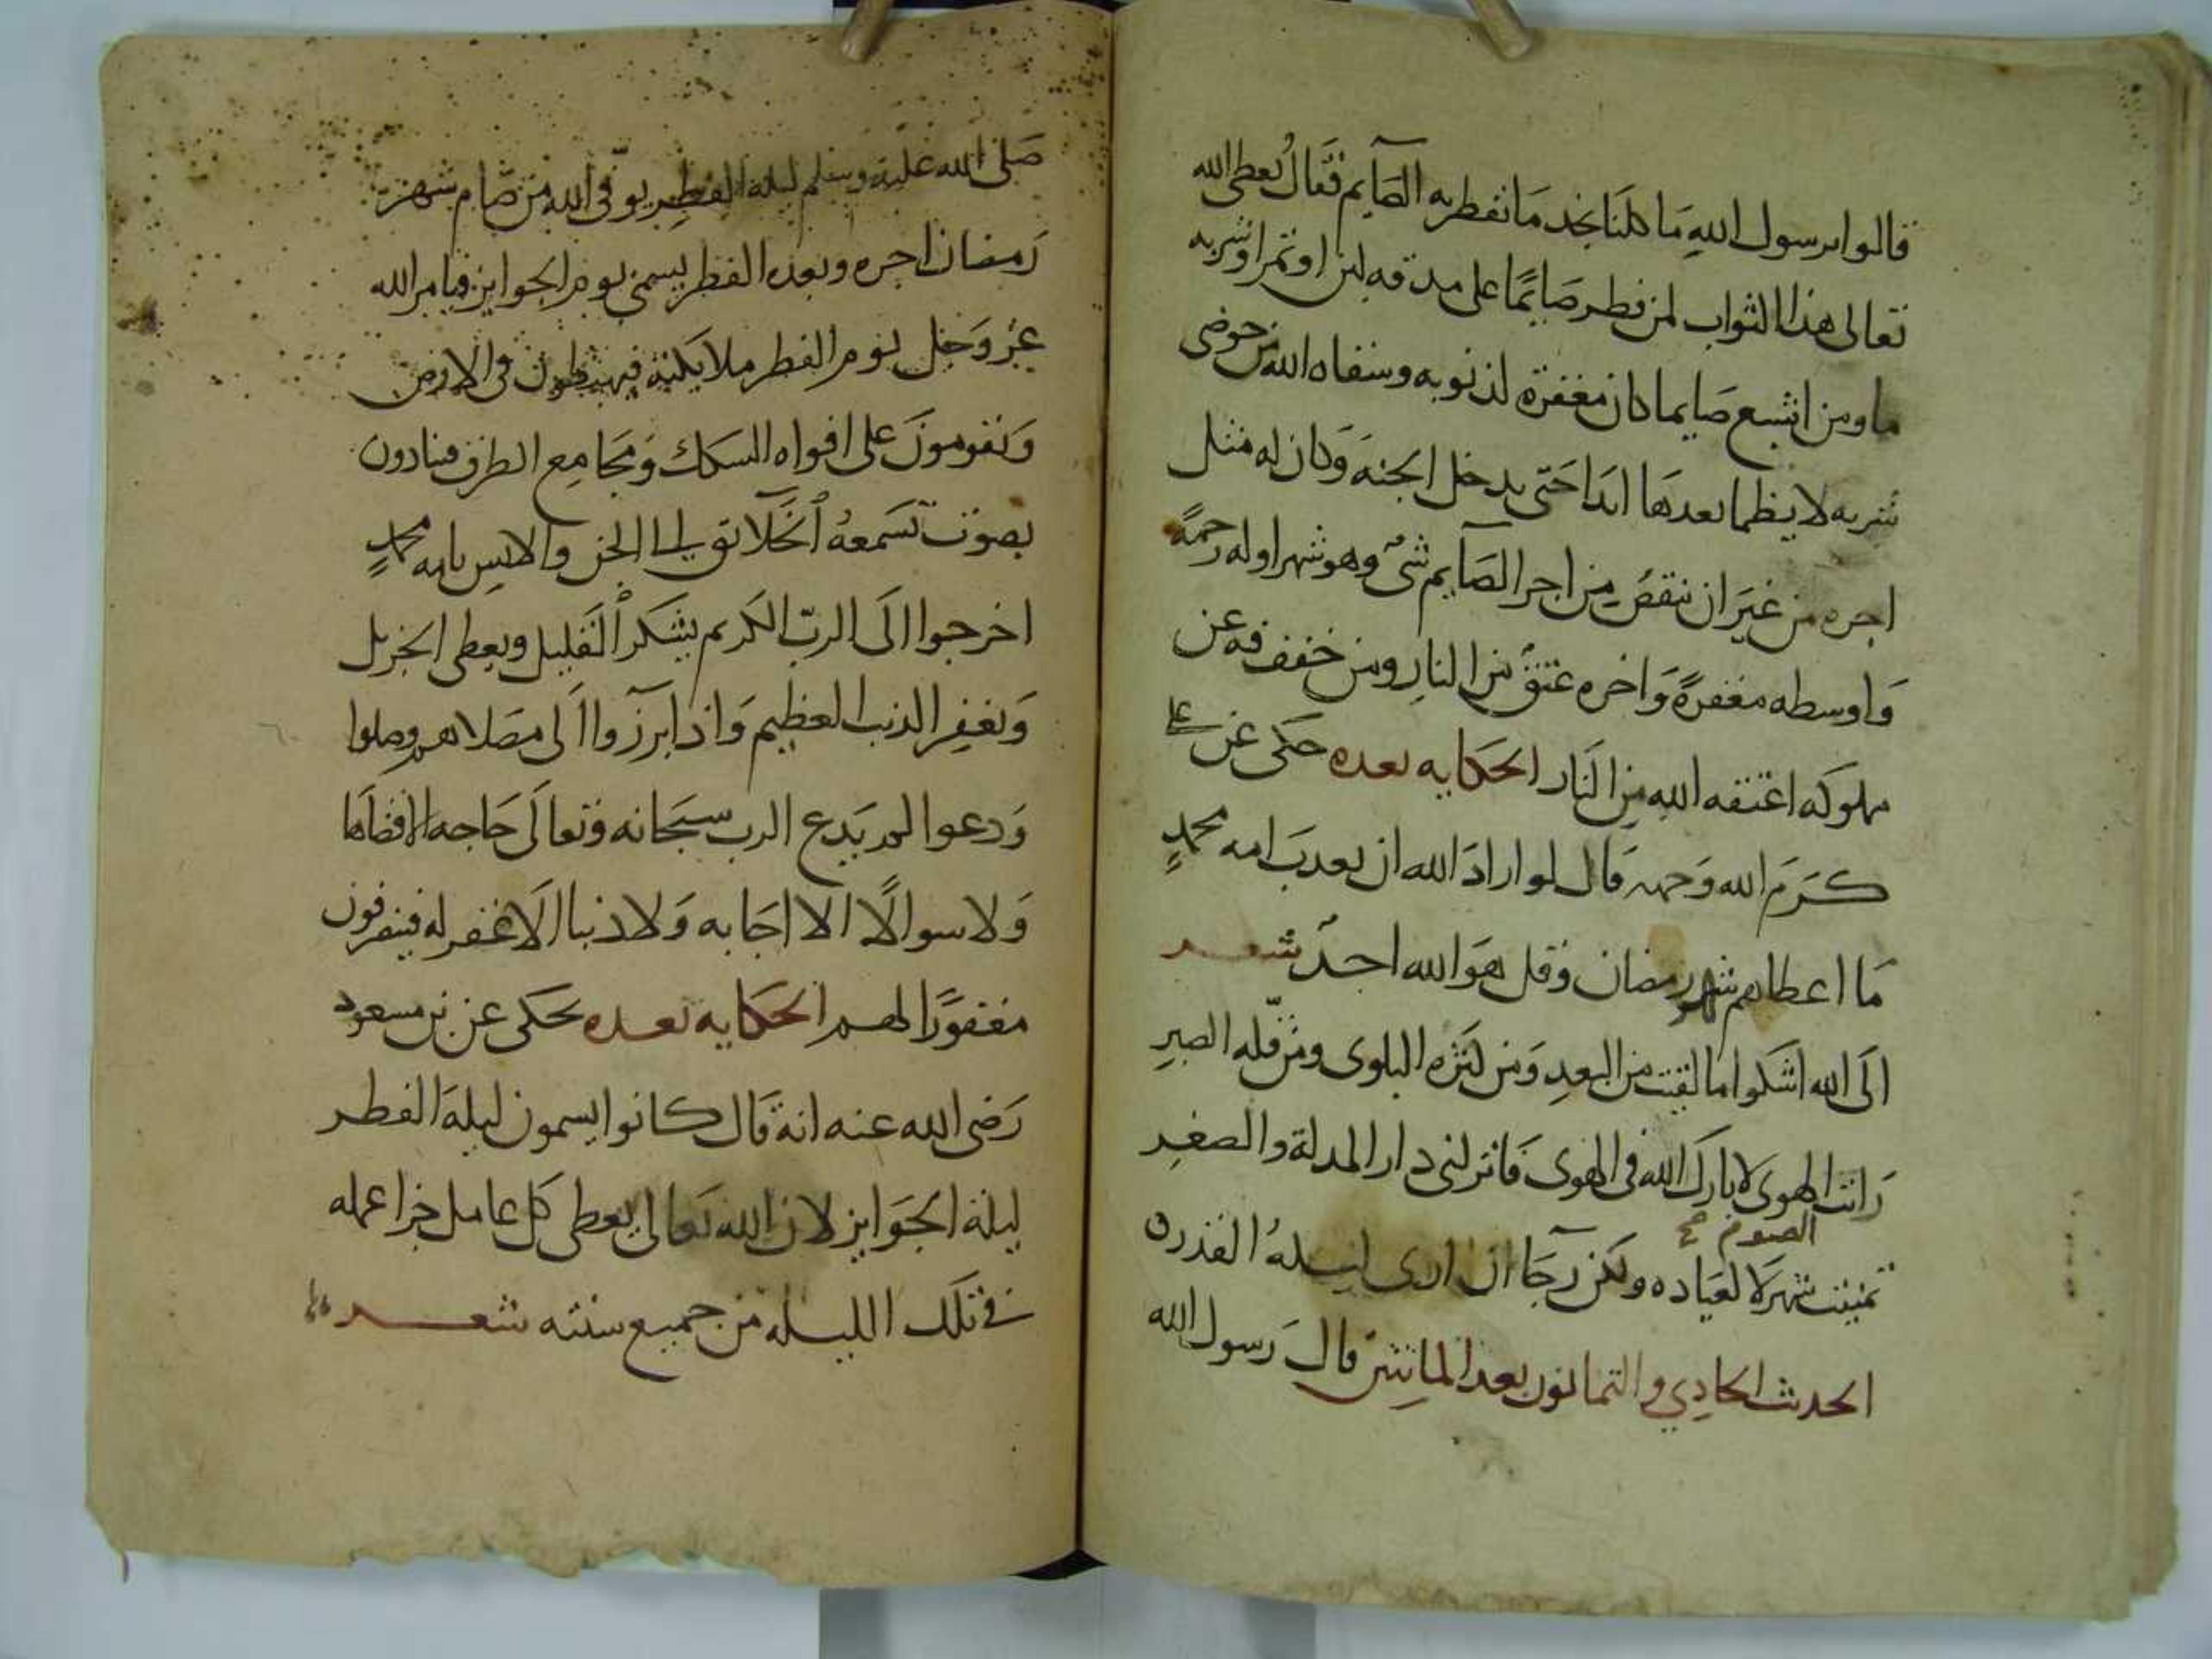 قالوا يرسول الله ما كلنا يجد ما نفطر به الصآيم فقال يعطى الله
تعالى هذا الثواب لمن فطر صايما على مدقه لبن او تمر او شربه
ما ومن اشبع صايما كان مغفرة لذنوبه وسقاه الله من حوضى
شربه لا يظما بعدها ابدا حتى يدخل الجنه وكان له مثل
اجره من غير ان ينقص من اجر الصآيم شئ وهو شهر اوله رحمة
واوسطه مغفرة واخره عتق من النار ومن خفف فه عن
مملوكه اعتقه الله من النار الحكايه بعده حكى عن على
كرم الله وجهه قال لو اراد الله ان يعدب امه محمد
ما اعطاهم شهر رمضان وقل هو الله احد شعر
الى الله اشكوا ما لقيت من البعد ومن كثره البلوى ومن قله الصبر
رانت الهوى لا بارك الله فى الهوى فانزلنى دار المدلة والصغر
الصوم صح
تمنيت شهر لا لعباده ولكن رجآ ان ارى ليله القدر
الحديث الحادي والثمانون بعد الماتين قال رسول الله
صلى الله عليه وسلم ليلة الفطر يوفى الله من صام شهر
رمضان اجره وبعده الفطر يسمى يوم الجوايز فيامر الله
عز وجل يوم الفطر ملايكته فيهبطون فى الارض
ويقومون على افواه السكك ومجامع الطرق فينادون
بصوت تسمعه الخلآئق الا الجن والانس يامه محمد
اخرجوا الى الرب الكريم يشكر القليل ويعطى الجزيل
ويغفر الذنب العظيم واذا برزوا الى مصلاهم وصلوا
ودعوا لم يدع الرب سبحانه وتعالى حاجه الا قضاها
ولا سوالا الا اجابه ولا ذنبا الا غفر له فينفرفون
مغفورا لهم الحكايه بعده يحكى عن بن مسعود
رضى الله عنه انه قال كانوا يسمون ليلة الفطر
ليلة الجوايز لان الله تعالى يعطى كل عامل جزا عمله
فى تلك الليله من جميع سنته شعر